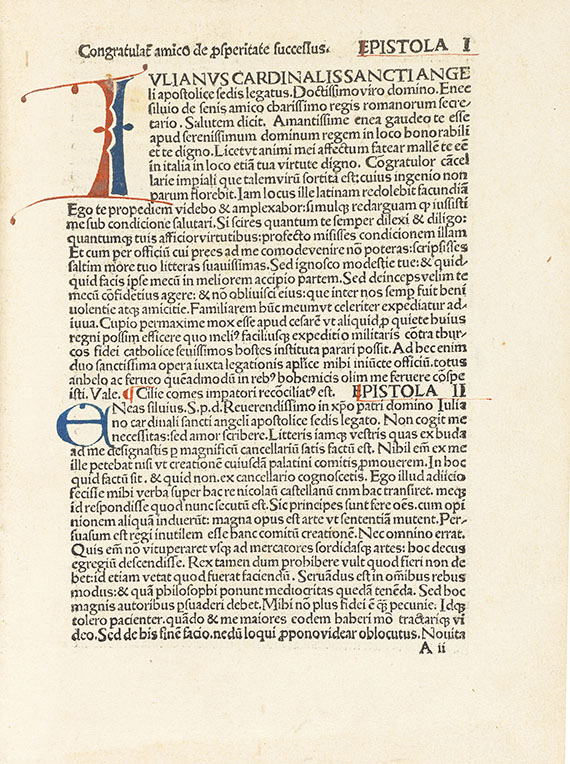 Congratulat᷒ amico de ꝓsperitate succeſſus. EPISTOLA I
IVLIANVS CARDINALIS SANCTI ANGE
li apostolice sedis legatus. Doctissimo viro domino. Enee
siluio de senis amico charissimo regis romanorum secre-
tario. Salutem dicit. Amantissime enea gaudeo te esse
apud serenissimum dominum regem in loco honorabili
et te digno. Licet vt animi mei affectum fatear mallē te eē
in italia in loco etiā tua virtute digno. Cogratulor cācel
larie impiali que talem virū sortita est: cuius ingenio non
parum florebit. Iam locus ille latinam redolebit facundiā
Ego te propediem videbo & amplexabor: simulqꝫ redarguam ꝙ iussisti
me sub condicione salutari. Si scires quantum te semper dilexi & diligo:
quantumqꝫ tuis afficior virtutibus: profecto misisses condicionem illam
Et cum per officiū cui prees ad me como de venire nō poteras: scripsisses
saltim more tuo litteras suauissimas. Sed ignosco modestie tue: & quid-
quid facis ipse mecū in meliorem accipio partem. Sed deinceps velim te
mecū cōfidētius agere: & nō obliuisci eius: que inter nos semꝑ fuit beni
uolentie atqꝫ amicitie. Familiarem hūc meum vt celeriter expediatur ad-
iuua. Cupio permaxime mox esse apud cesarē vt aliquid ꝓ quiete huius
regni possim efficere quo meliꝰ faciliusqꝫ expeditio militaris cōtra thur-
cos fidei catholice seuissimos hostes instituta parari possit. Ad hec enim
duo sanctissima opera iuxta legationis aplice mihi iniūcte officiū. totus
anhelo ac ferueo quēadmodū in rebꝰ bohemicis olim me feruere cōspe-
isti. Vale. ¶ Cilie comes impatori recōciliatꝰ est. EPISTOLA II
ENeas siluius. S. p. d. Reuerendissimo in xp̄o patri domino Iulia
no cardinali sancti angeli apostolice sedis legato. Non cogit me
necessitas: sed amor scribere. Litteris iamqꝫ vestris quas ex buda
ad me designastis ꝑ magnificū cancellariū satis factū est. Nihil em̄ ex me
ille petebat nisi vt creationē cuiusdā palatini comitis ꝓmouerem. In hoc
quid factū sit. & quid non. ex cancellario cognoscetis. Ego illud adiicio
fecisse mihi verba super hac re nicolaū castellanū cnm hac transiret. meqꝫ
id respondisse quod nunc secutū est. Sic principes sunt fere oēs. cum opi
nionem aliquā induerūt: magna opus est arte vt sententiā mutent. Per-
suasum est regi inutilem esse hanc comitū creationē. Nec omnino errat.
Quis em̄ nō vituperaret vsqꝫ ad mercatores sordidasqꝫ artes: hoc decus
egregiū descendisse. Rex tamen dum prohibere vult quod fieri non de
bet: id etiam vetat quod fuerat faciendū. Seruādus est in oīnibus rebus
modus: & quā philosophi ponunt mediocritas quedā tenēda. Sed hoc
magnis autoribus ꝑsuaderi debet. Mihi nō plus fidei ē qꝫ̄ pecunie. Idqꝫ
tolero pacienter. quādo & me maiores eodem haberi mō tractariqꝫ vi
deo. Sed de his finē facio. nedū loqui ꝓpono videar oblocutus. Nouita
A ii